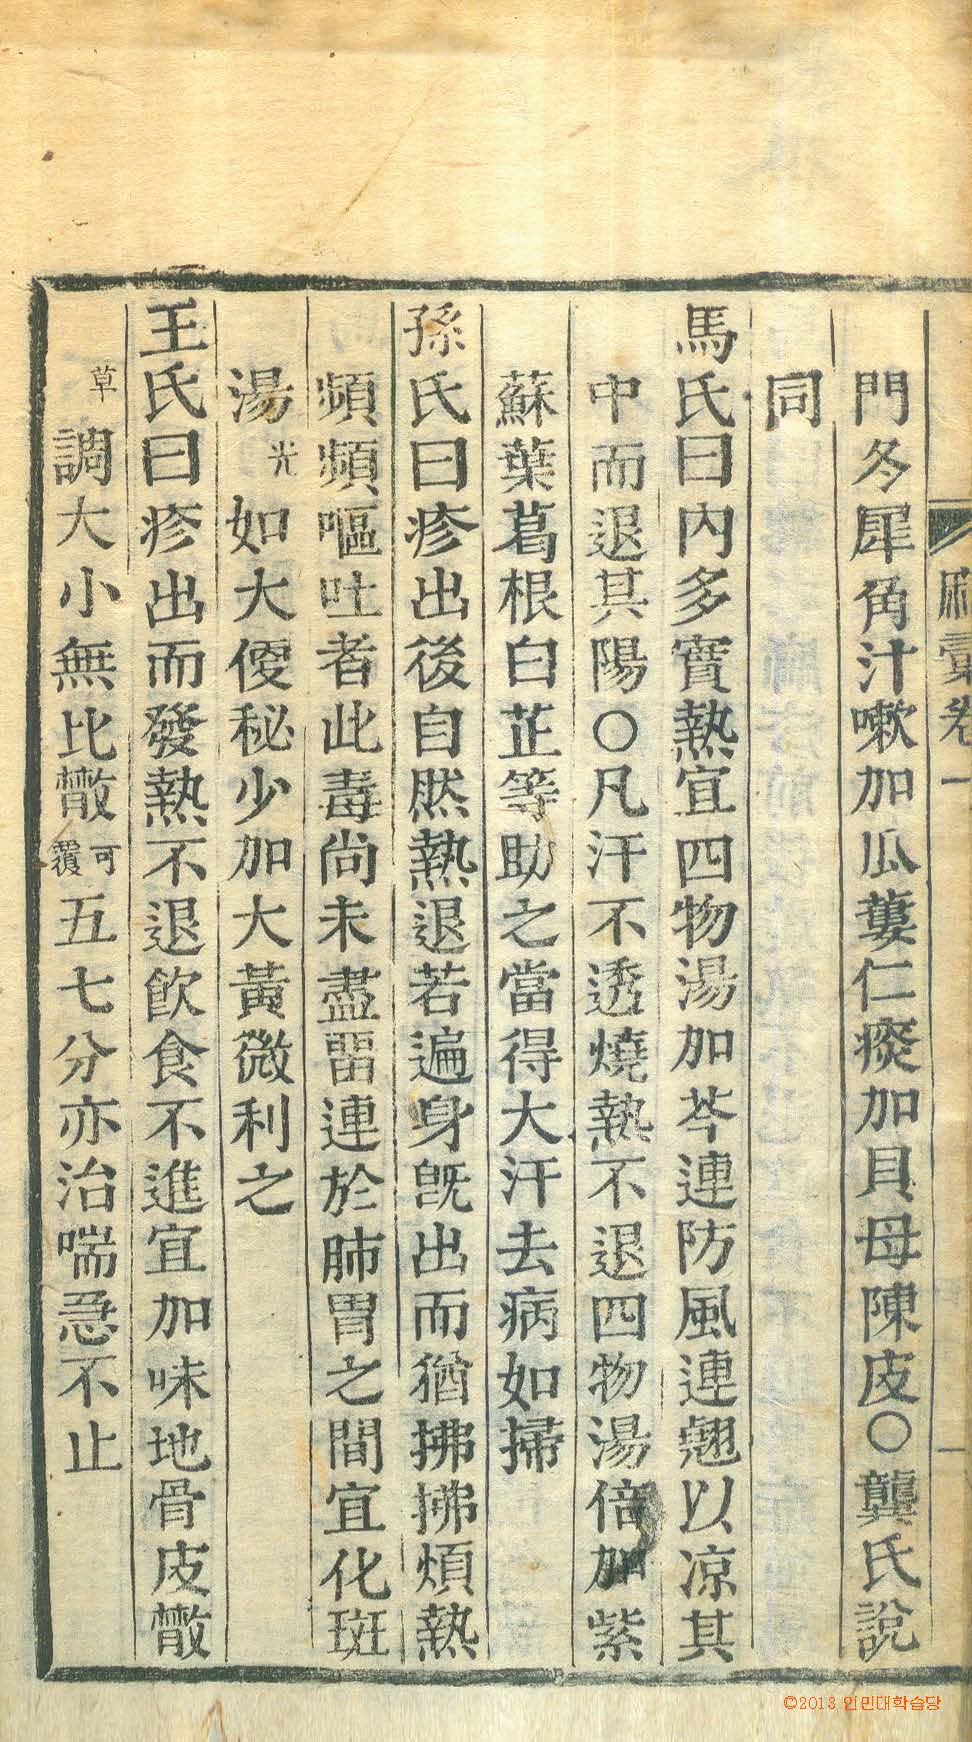 麻彙卷一
門冬犀角汁嗽加瓜蔞仁痰加貝母陳皮○龔氏說
同
馬氏曰內多實熱宜四物湯加芩連防風連翹以凉其
中而退其陽○凡汗不透燒熱不退四物湯倍加紫
蘇葉葛根白芷等助之當得大汗去病如掃
孫氏曰疹出後自然熱退若遍身旣出而猶拂拂煩熱
頻頻嘔吐者此毒尚未盡畱連於肺胃之間宜化斑
湯光如大便秘少加大黃微利之
王氏曰疹出而發熱不退飮食不進宜加味地骨皮散
草調大小無比散可覆五七分亦治喘急不止
©2013 인민대학습당